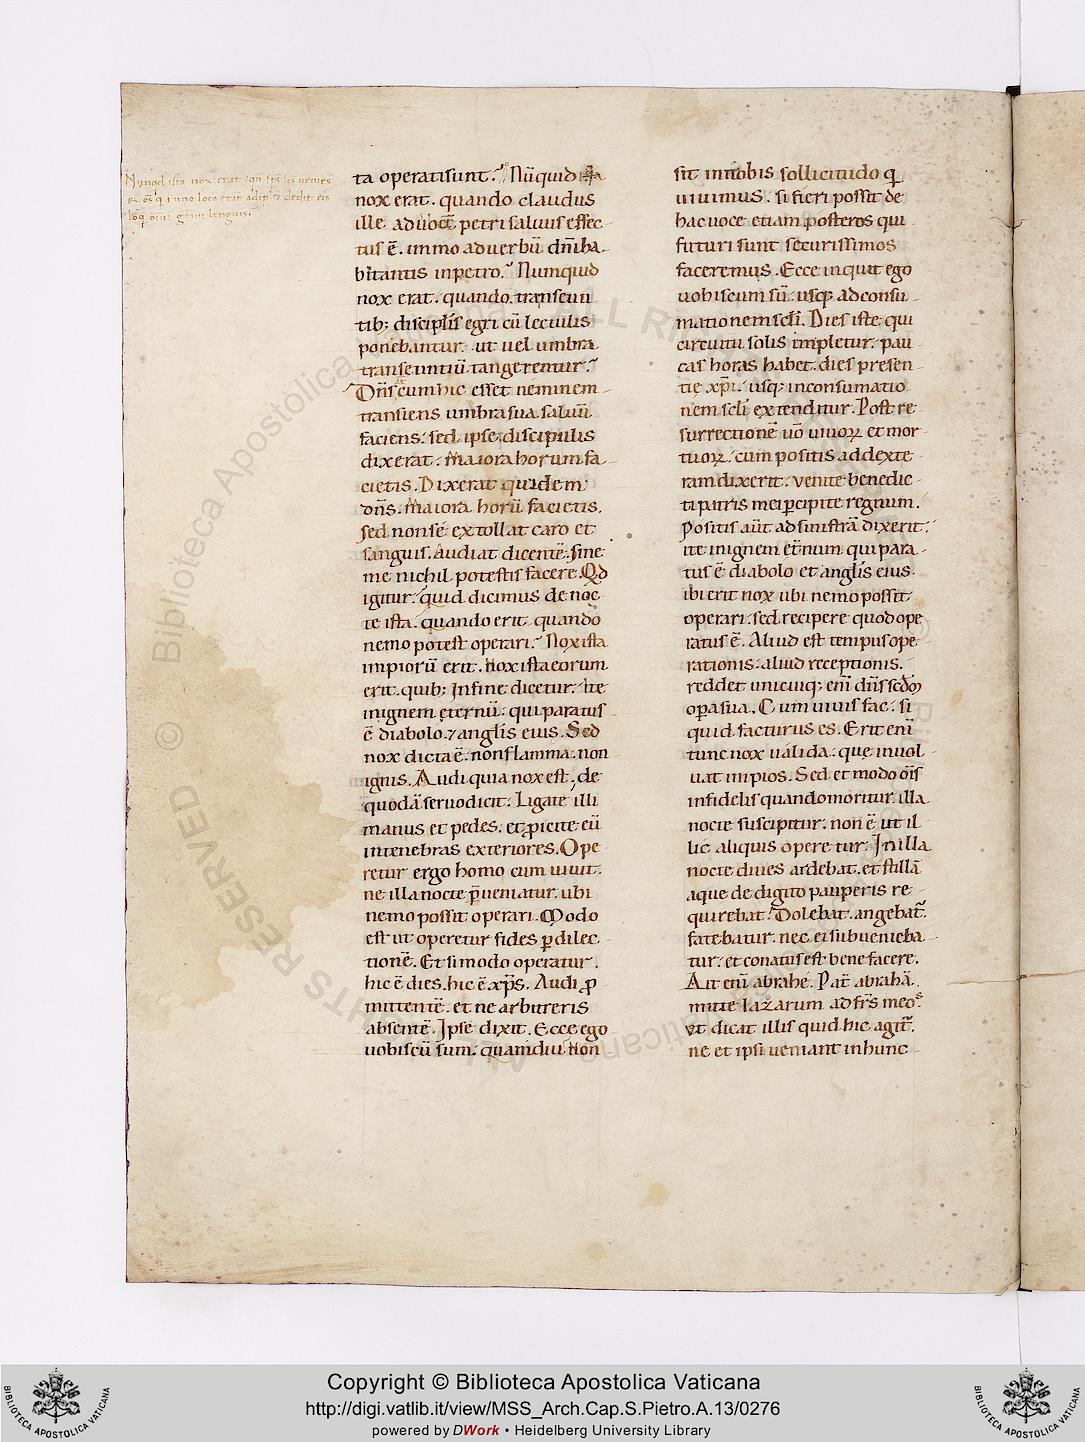 Nunqd ista nox erat qn sps scs veniens
& os q i uno loco erat adiplēs dedit eis
loq oīuꝫ gētiū linguis.
ta operati sunt. Nūquid ista
nox erat. quando claudus
ille ad uocē petri saluus effec-
tus ē. immo ad uerbū dn̄i ha-
bitantis in petro. Numquid
nox erat. quando transeun
tib; discipl̄is egri cū lectulis
ponebantur. ut uel umbra
transeuntiū tangerentur.
Dn̄s cum hic esset neminem
transiens umbra sua saluū
faciens. sed ipse discipulis
dixerat. Maiora horum fa-
cietis. Dixerat quidem
dn̄s. Maiora horū facietis.
sed non se extollat caro et
sanguis. Audiat dicentē. sine
me nichil potestis facere. Qd
igitur. quid dicimus de noc-
te ista. quando erit quando
nemo potest operari. Nox ista
impiorū erit. Nox ista eorum
erit. quib; in fine dicetur. ite
in ignem ęternū. qui paratus
ē diabolo. ⁊ anglīs eius. Sed
nox dicta ē. non flamma. non
ignis. Audi quia nox est. de
quodā seruo dicit. Ligate illi
manus et pedes. et ꝓicite eū
in tenebras exteriores. Ope
retur ergo homo cum uiuit.
ne illa nocte p̄ueniatur. ubi
nemo possit operari. Modo
est ut operetur fides ꝑ dilec-
tionē. Et si modo operatur.
hic ē dies. hic ē xp̄s. Audi ꝓ
mittentē. et ne arbitreris
absentē. Ipse dixit. Ecce ego
uobiscū sum. quamdiu non
sit in nobis sollicitudo q̄
uiuimus. si fieri possit de
hac uoce etiam posteros qui
futuri sunt securissimos
faceremus. Ecce inquit ego
uobiscum sū. usq; ad consu-
mationem scl̄i. Dies iste qui
circuitu solis impletur. pau
cas horas habet. dies presen-
tię xp̄i. usq; in consumatio
nem scl̄i extenditur. Post re
surrectionē uō uiuoꝝ et mor-
tuoꝝ. cum positis ad dexte-
ram dixerit. venite benedic-
ti patris mei ꝑcipite regnum.
Positis aūt ad sinistrā dixerit.
ite in ignem et̄num qui para-
tus ē diabolo et anglīs eius.
ibi erit nox ubi nemo possit
operari. sed recipere quod ope
ratus ē. Aliud est tempus ope-
rationis. aliud receptionis.
reddet unicuiq; eni dn̄s scdm
oꝑa sua. Cum uiuis fac. si
quid facturus es. Erit enī
tunc nox ualida. que inuol-
uat impios. Sed et modo om̄s
infidelis quando moritur illa
nocte suscipitur. non ē ut il-
lic aliquis operetur. In illa
nocte diues ardebat. et stillā
aque de digito pauperis re-
quirebat. Dolebat. angebat̄.
fatebatur. nec ei subuenieba-
tur. et conatus est benefacere.
Ait enī abrahę. Pat̄ abrahā.
mitte lazarum ad frs̄ meos.
vt dicat illis quid hic agit̄.
ne et ipsi ueniant in hunc-
Copyright © Biblioteca Apostolica Vaticana
http://digi.vatlib.it/view/MSS_Arch.Cap.S.Pietro.A.13/0276
powered by DWork • Heidelberg University Library